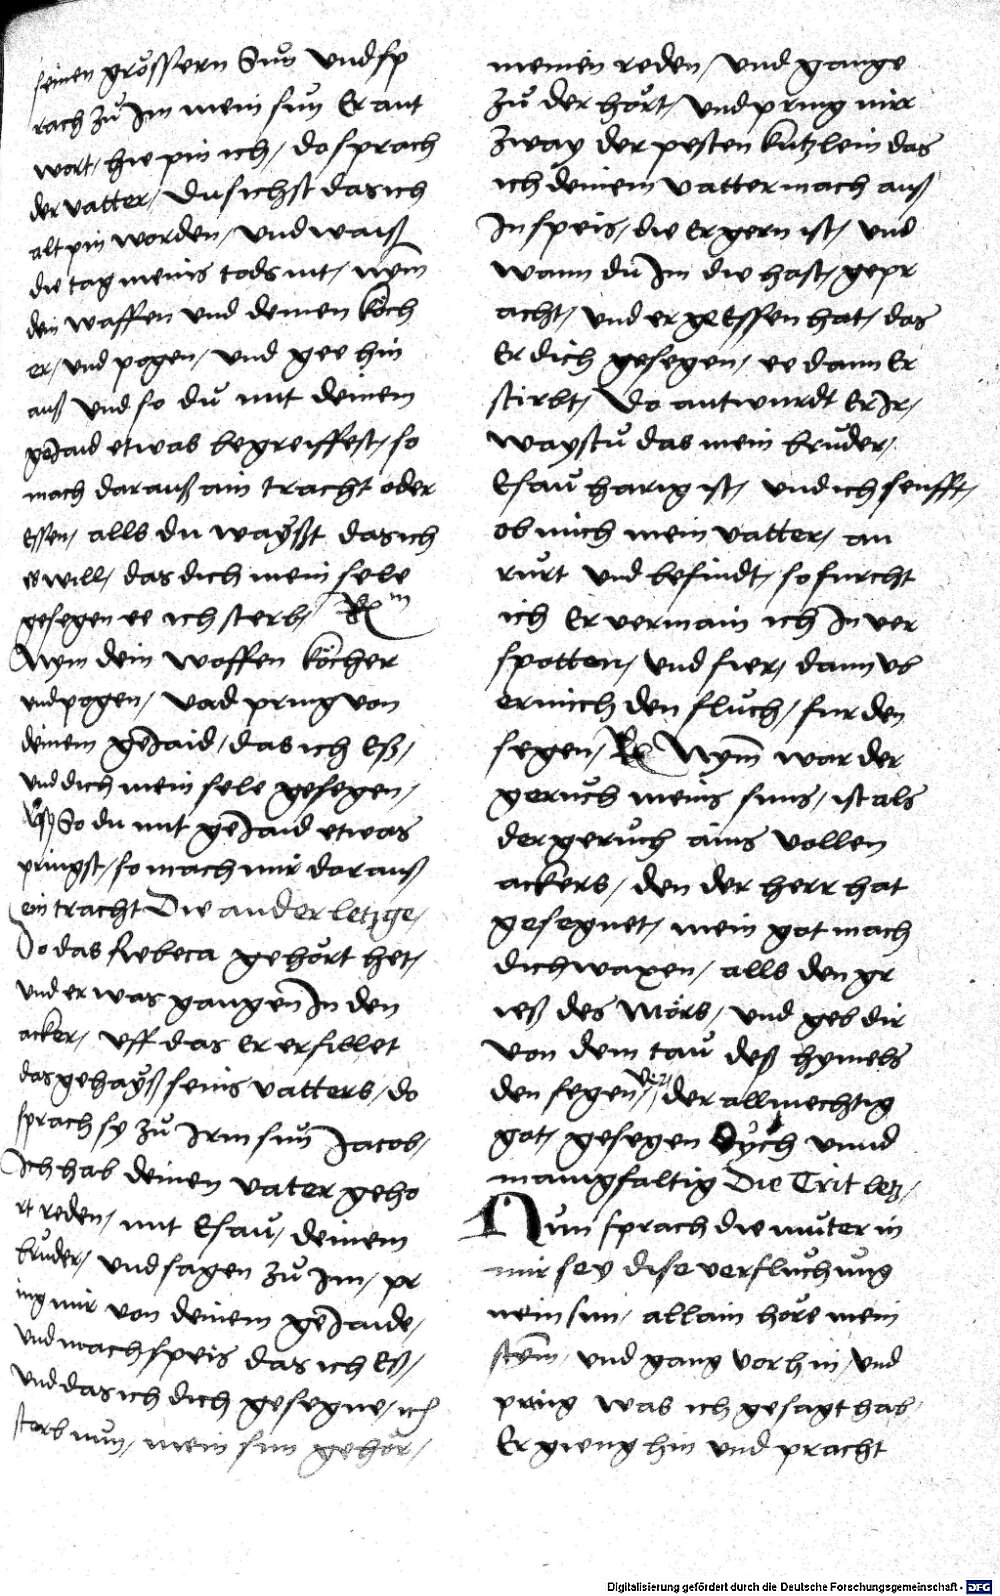 seinen grössern Sun Und sp
rach zů Im mein sun Er ant
wort, hie pin ich, do sprach
der vatter, Du sichst das ich
alt pin worden, Und waiß
die tag meins tods nit, nym
dein waffen und deinen köch
er, und pogen, und gee hin
auß Und so dů mit deinem
geJaid etwas begreiffest, so
mach darauß ain tracht oder
Essen, alls du wayßt das ich
es will, das dich mein sele
gesegen ee ich sterb,
Nym dein waffen köcher
und pogen, Vnd pring von
deinem geJaid, das ich Eß,
Und dich mein sele gesegen,
So du mit geJaid etwas
pringst, so mach mir darauß
ein tracht Die ander letzge,
Do das Rebeca gehört het,
Und er was gangen In den
acker, Uff das Er erfillet
das gehayß seins vatters, do
sprach sy zů Irm sun Jacob,
Ich hab deinen vater geho
rt reden, mit Esaů, deinem
brůder, Und sagen zů Im, pr
ing mir von deinem geJaide,
Und mach speis das ich Eß,
Und das ich dich gesegne, ich
sterb nun, mein sun gehör,
meinen reden, Und gange
zů der hört, Und pring mir
zway der pesten kitzlein das
ich deinem vatter mach auß
In speis, die Er gern ist, Und
wann dů Im die hast, gepr
acht, Und er gEssen hat, das
Er dich gesegen, ee dann Er
stirbt, Do antwurdt Er Ir,
waystu das mein brůder,
Esaů harig ist, Und ich senfft,
ob mich mein vatter, an
rürt Und befindt, so furcht
ich Er vermain ich In ver
spotten, Und fier, dann Us
er mich den flůch, fur den
segen, Nym war der
gerůch meins suns, ist als
der gerůch ains vollen
ackers, den der herr hat
gesegnet, mein got mach
dich waxen, alls den gr
ieß des Mörs, und geb dir
von dem taů deß hymels
den segen, der allmechtig
got, gesegen Dych unnd
manigfaltig Die Trit letz,
Nun sprach die můter in
mir sey dise verflůchůng
mein sun, allain höre mein
stym, Und gang vor hin, Und
pring was ich gesagt hab,
Er gieng hin Und pracht
Digitalisierung gefördert durch die Deutsche Forschungsgemeinschaft - DFG